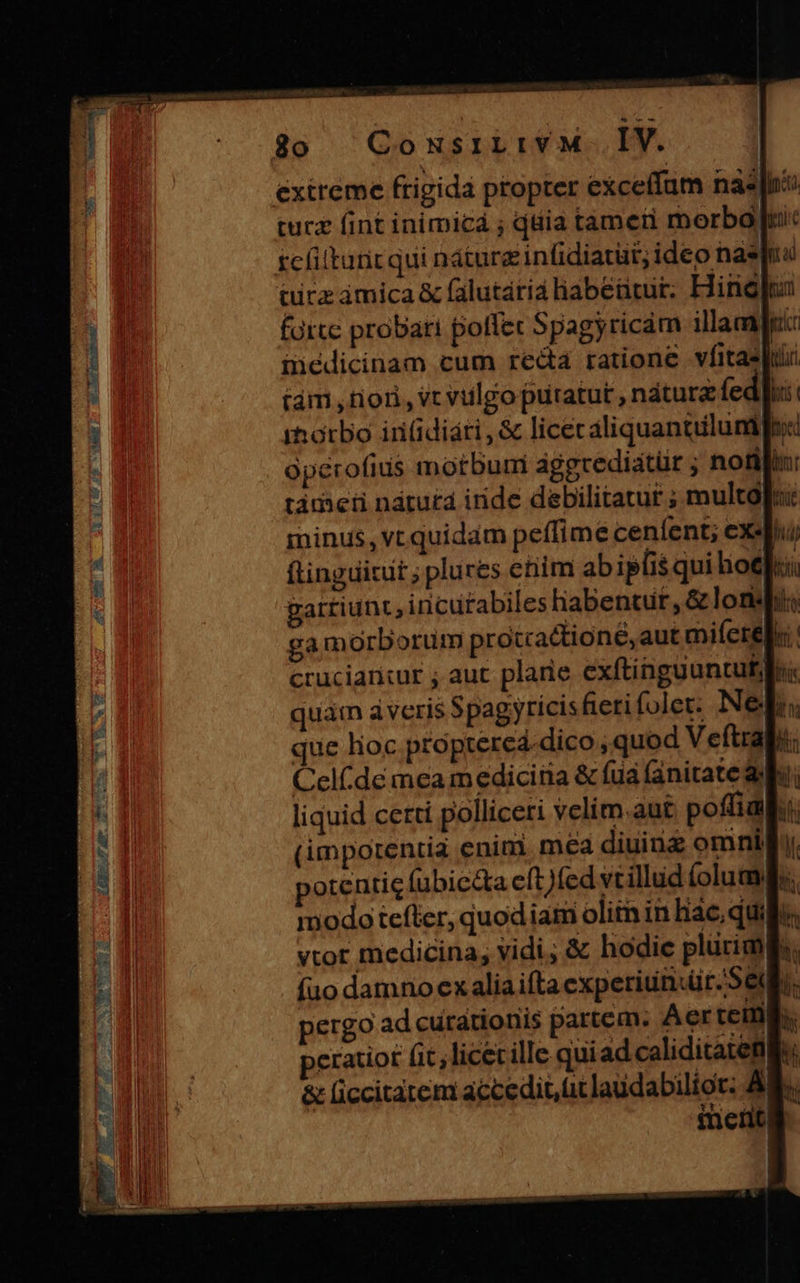 80 CONSILIVM IV.
extreme frigida propter exceſſum na-
turæ ſint inimica ; quia tamen morbo
reſiſtunt qui naturæ inſidiatur, ideo na-
turæ amica & ſalutaria habentur. Hinc
forte probari poſſet Spagyricam illam
medicinam cum recta ratione vſita-
tam, non, vt vulgo putatur, naturæ ſed
morbo inſidiari, & licet aliquantulum
operoſius morbum aggrediatur ; non
tamen natura inde debilitatur ; multo
minus, vt quidam peſſime cenſent; ex-
ſtinguitur ; plures enim ab ipſis qui hoc
garriunt, incurabiles habentur, & lon-
ga morborum protractione, aut miſere
cruciantur ; aut plane exſtinguuntur,
quam a veris Spagyricis fieri ſolet. Ne-
que hoc propterea dico, quod Veſtra
Celſ. de mea medicina & ſua ſanitate a-
liquid certi polliceri velim aut poſſim
(impotentia enim mea diuinæ omni-
potentię ſubiecta eſt) ſed vt illud ſolum-
modo teſter, quod iam olim in hac, qua
vtor medicina, vidi, & hodie plurimi
ſuo damno ex alia iſta experiuntur. Sed
pergo ad curationis partem. Aer tem-
peratior ſit, licet ille qui ad caliditatem
& ſiccitatem accedit, ſit laudabilior. A-
ment